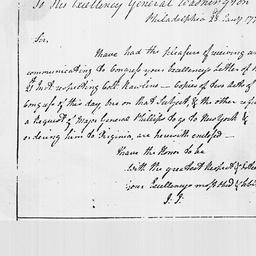 To His Excellency General Washington
Philadelphia 23 Aug 177
Sir,
I have had the pleasure of receiving and
communicating to Congress your Excellency's Letter of the
21 Inst. respecting Colo. Rawlins — Copies of two Acts of
Congress of this day one on that Subject, & the other upon
a Request of Major General Phillips to go to New York &
ordering him to Virginia, are herewith enclosed —
I have the Honor to be
with the greatest Respect & Esteem
your Excellency's most Obed
J. J.